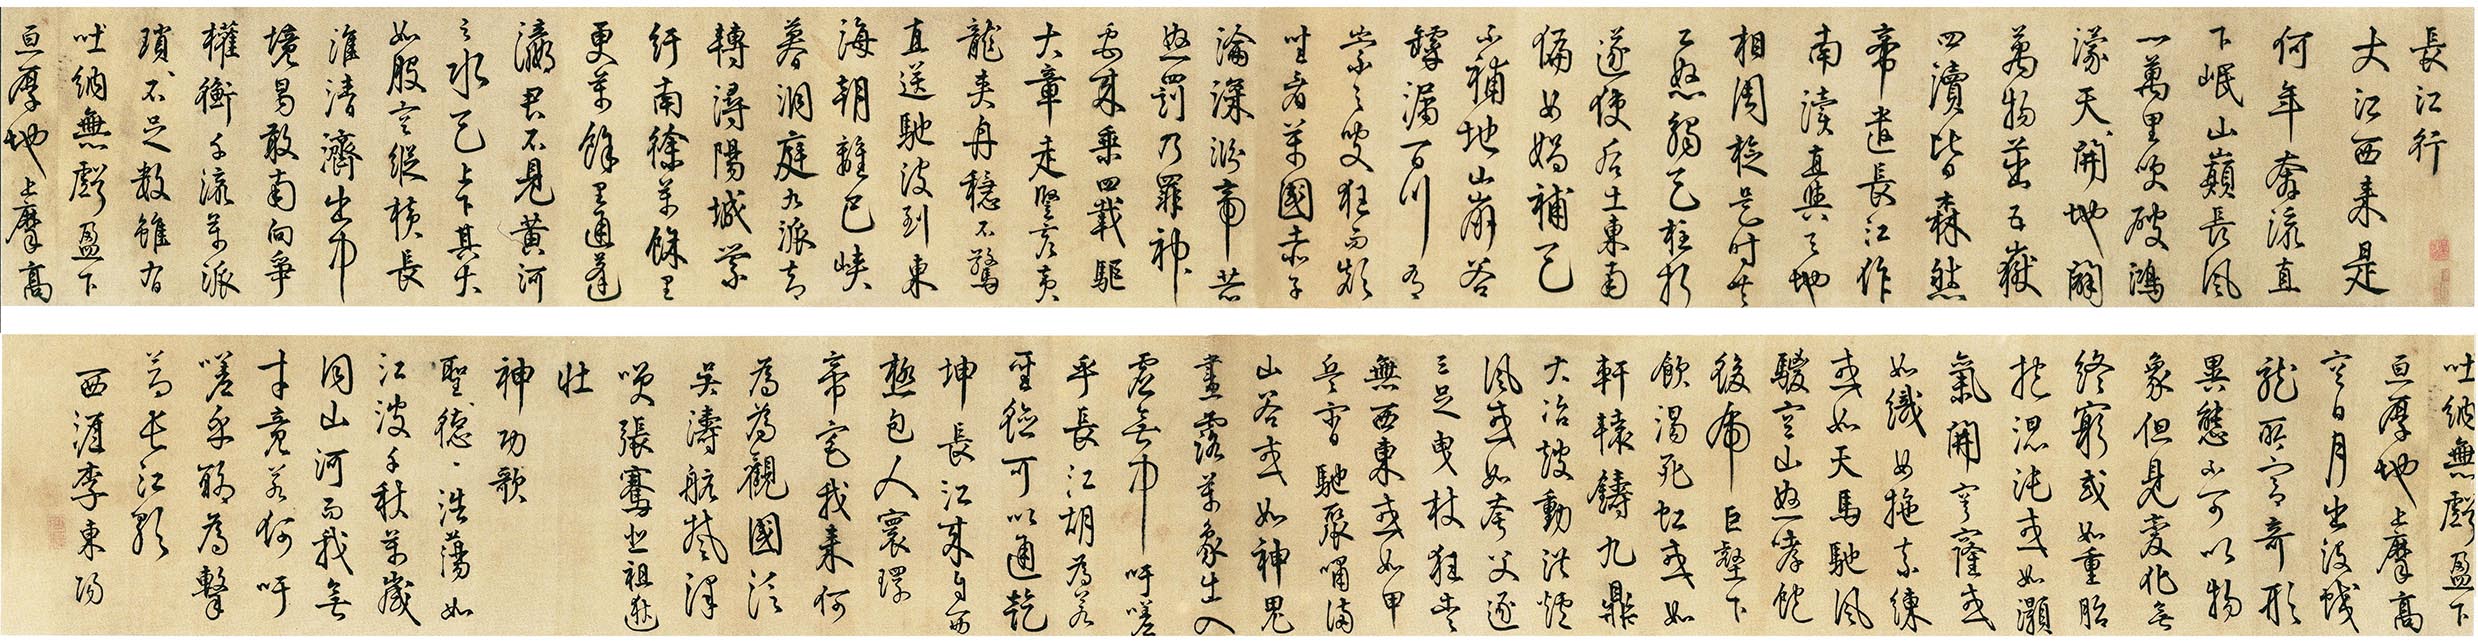 長江行
大江西來是
何年奔流直
下岷山巔長風
一萬里吹破鴻
濛天開地闢
萬物茁五嶽
四瀆皆森然
帝遣長江作
南瀆直與天地
相周旋是時共
工怒觸天柱折
遂使后土東南
偏女媧補天
不補地山崩谷
罅漏百川有
崇之叟狂而顛
坐看萬國赤子
淪深淵帝
怒罰乃罪神
禹來乘四載驅
大章走豎亥黃
龍夾舟穩不驚
直送馳波到東
海朝離巴峽
暮洞庭九派却
轉潯陽城縈
紆南徐萬餘里
更萬餘里通蓬
瀛君不見黃河
之水天上下其大
如股空縱橫長
淮清濟出中
境曷敢南向爭
權衡千流萬派
瑣瑣不足數雖有
吐納無虧盈下
亘厚地上摩高
吐納無虧盈下
亘厚地上摩高
空日月出沒蛟
龍所宮奇形
異態不可以物
象但見變化無
終窮或如重胎
抱混沌或如灝
氣開穹窿或
如織女拖素練
或如天馬馳風
騣空山怒哮飽
後虎巨壑下
飲渴死虹或如
軒轅鑄九鼎
大冶鼓動洪爐
風或如夸父逐
三足曳杖狂走
無西東或如甲
兵宵馳聚嘯滿
山谷或如神鬼
晝露萬象出入
虛無中吁嗟
乎長江胡為若
可以通乾
坤長江來自西
極包人寰環
帝宅我來何
為為觀國泛
吳濤航楚澤
笑張騫悲祖逖
壯
神功歌
聖德浩蕩如
江波千秋萬歲
同山河而我無
才竟若何吁
嗟乎聊為擊
節長江歌
西涯李東陽